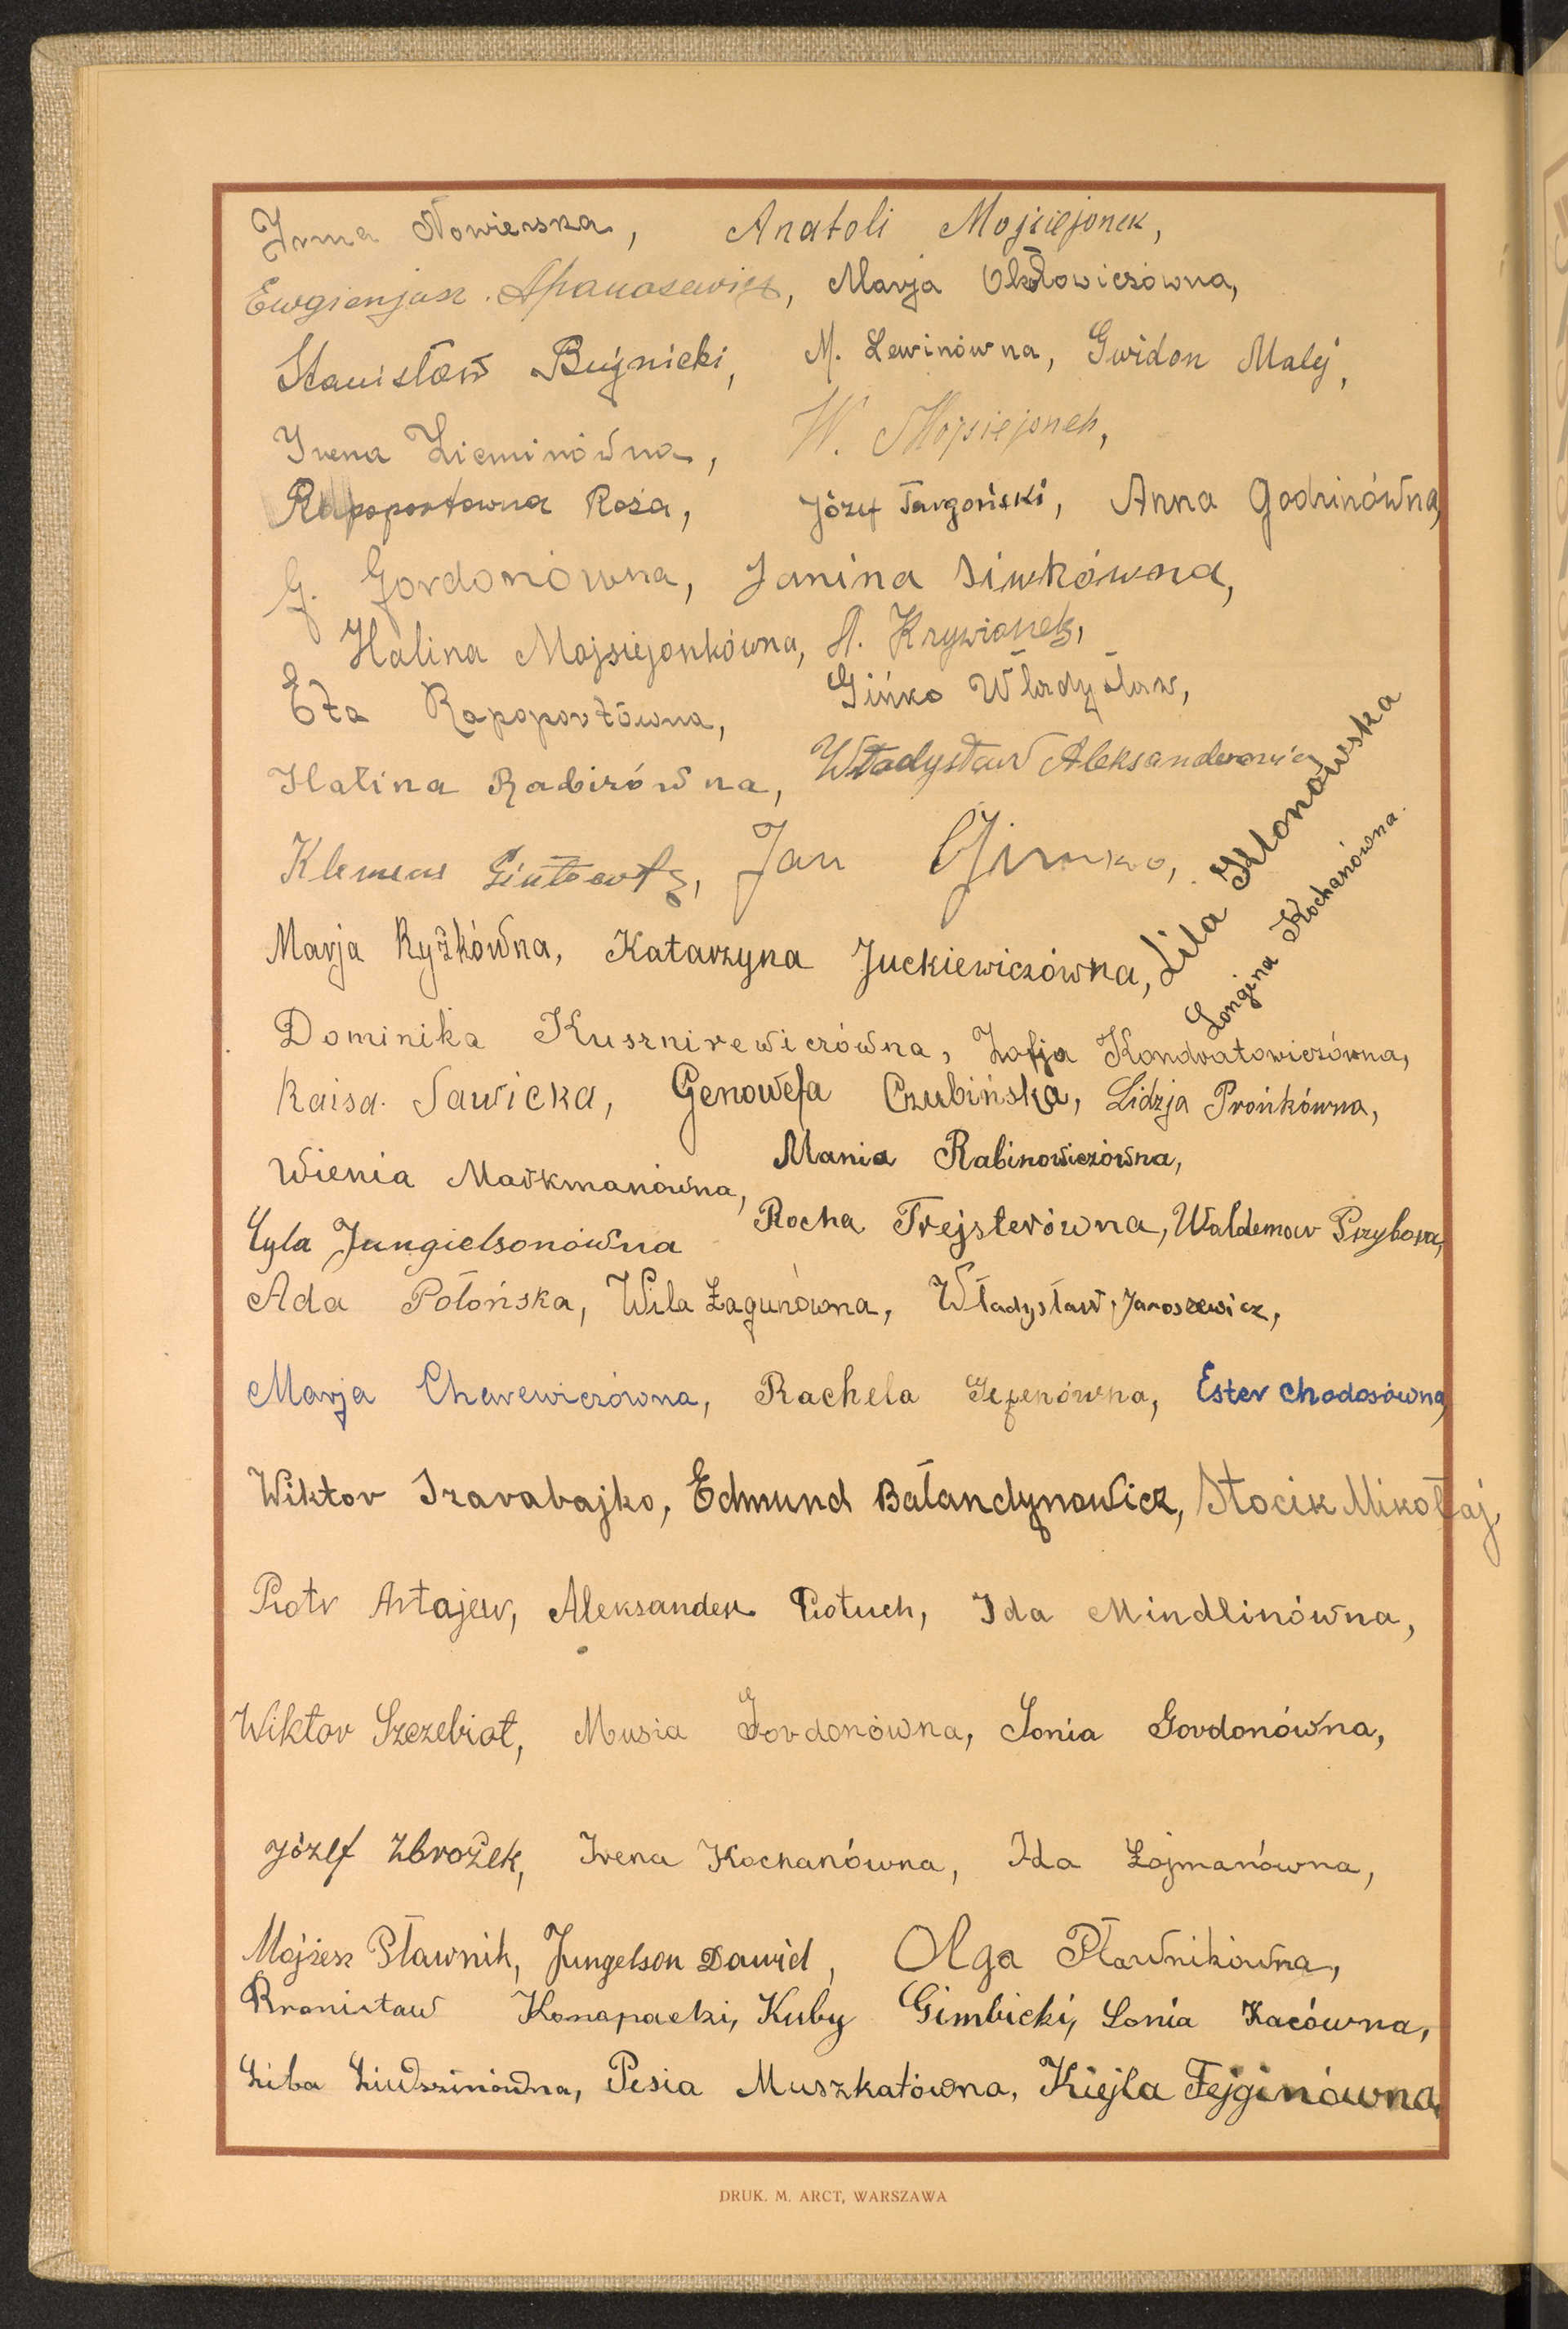 Irma Nowierska, Anatoli Mojsiejonek,
Ewgienjusz Apanasewicz, Marja Okołowiczówna,
Stanisław Bujnicki, M. Lewinówna, Gwidon Malej,
Irena Zieminówna, W. Mojsiejonek,
Rapoportówna Roza, Józef Targoński, Anna Godzinówna,
G. Gordonówna, Janina Siwkówna,
Halina Mojsiejonkówna, A. Krywionek,
Eta Rapoportówna, Gińko Władysław,
Halina Rabizówna, Władysław Aleksandrowicz
Klemens Gintowt, Jan Ginko,
Marja Ryżkówna, Katarzyna Juckiewiczówna, Lila Klonowska
Longina Kochanówna.
Dominika Kusznirewiczówna, Zofja Kondratowiczówna,
Raisa Sawicka, Genowefa Czubińska, Lidzja Prońkówna,
Wienia Markmanówna, Mania Rabinowiczówna,
Cyla Jungielsonówna Rocha Trejsterówna, Waldemar Przybora,
Ada Połońska, Wila Łagunówna, Władysław Jaroszewicz,
Marja Charewiczówna, Rachela Gefenówna, Ester Chodosówna,
Wiktor Szarabajko, Edmund Bałandynowicz, Stocik Mikołaj,
Piotr Artajew, Aleksander Piotuch, Ida Mindlinówna,
Wiktor Szczebiot, Musia Gordonówna, Sonia Gordonówna,
Józef Zbrożek, Irena Kochanówna, Ida Łojmanówna,
Mojżesz Pławnik, Jungelson Dawid, Olga Pławnikówna,
Bronisław Konopacki, Kuby Gimbicki, Sonia Kacówna,
Liba Liwszinówna, Pesia Muszkatówna, Kiejla Fejginówna,
DRUK. M. ARCT, WARSZAWA